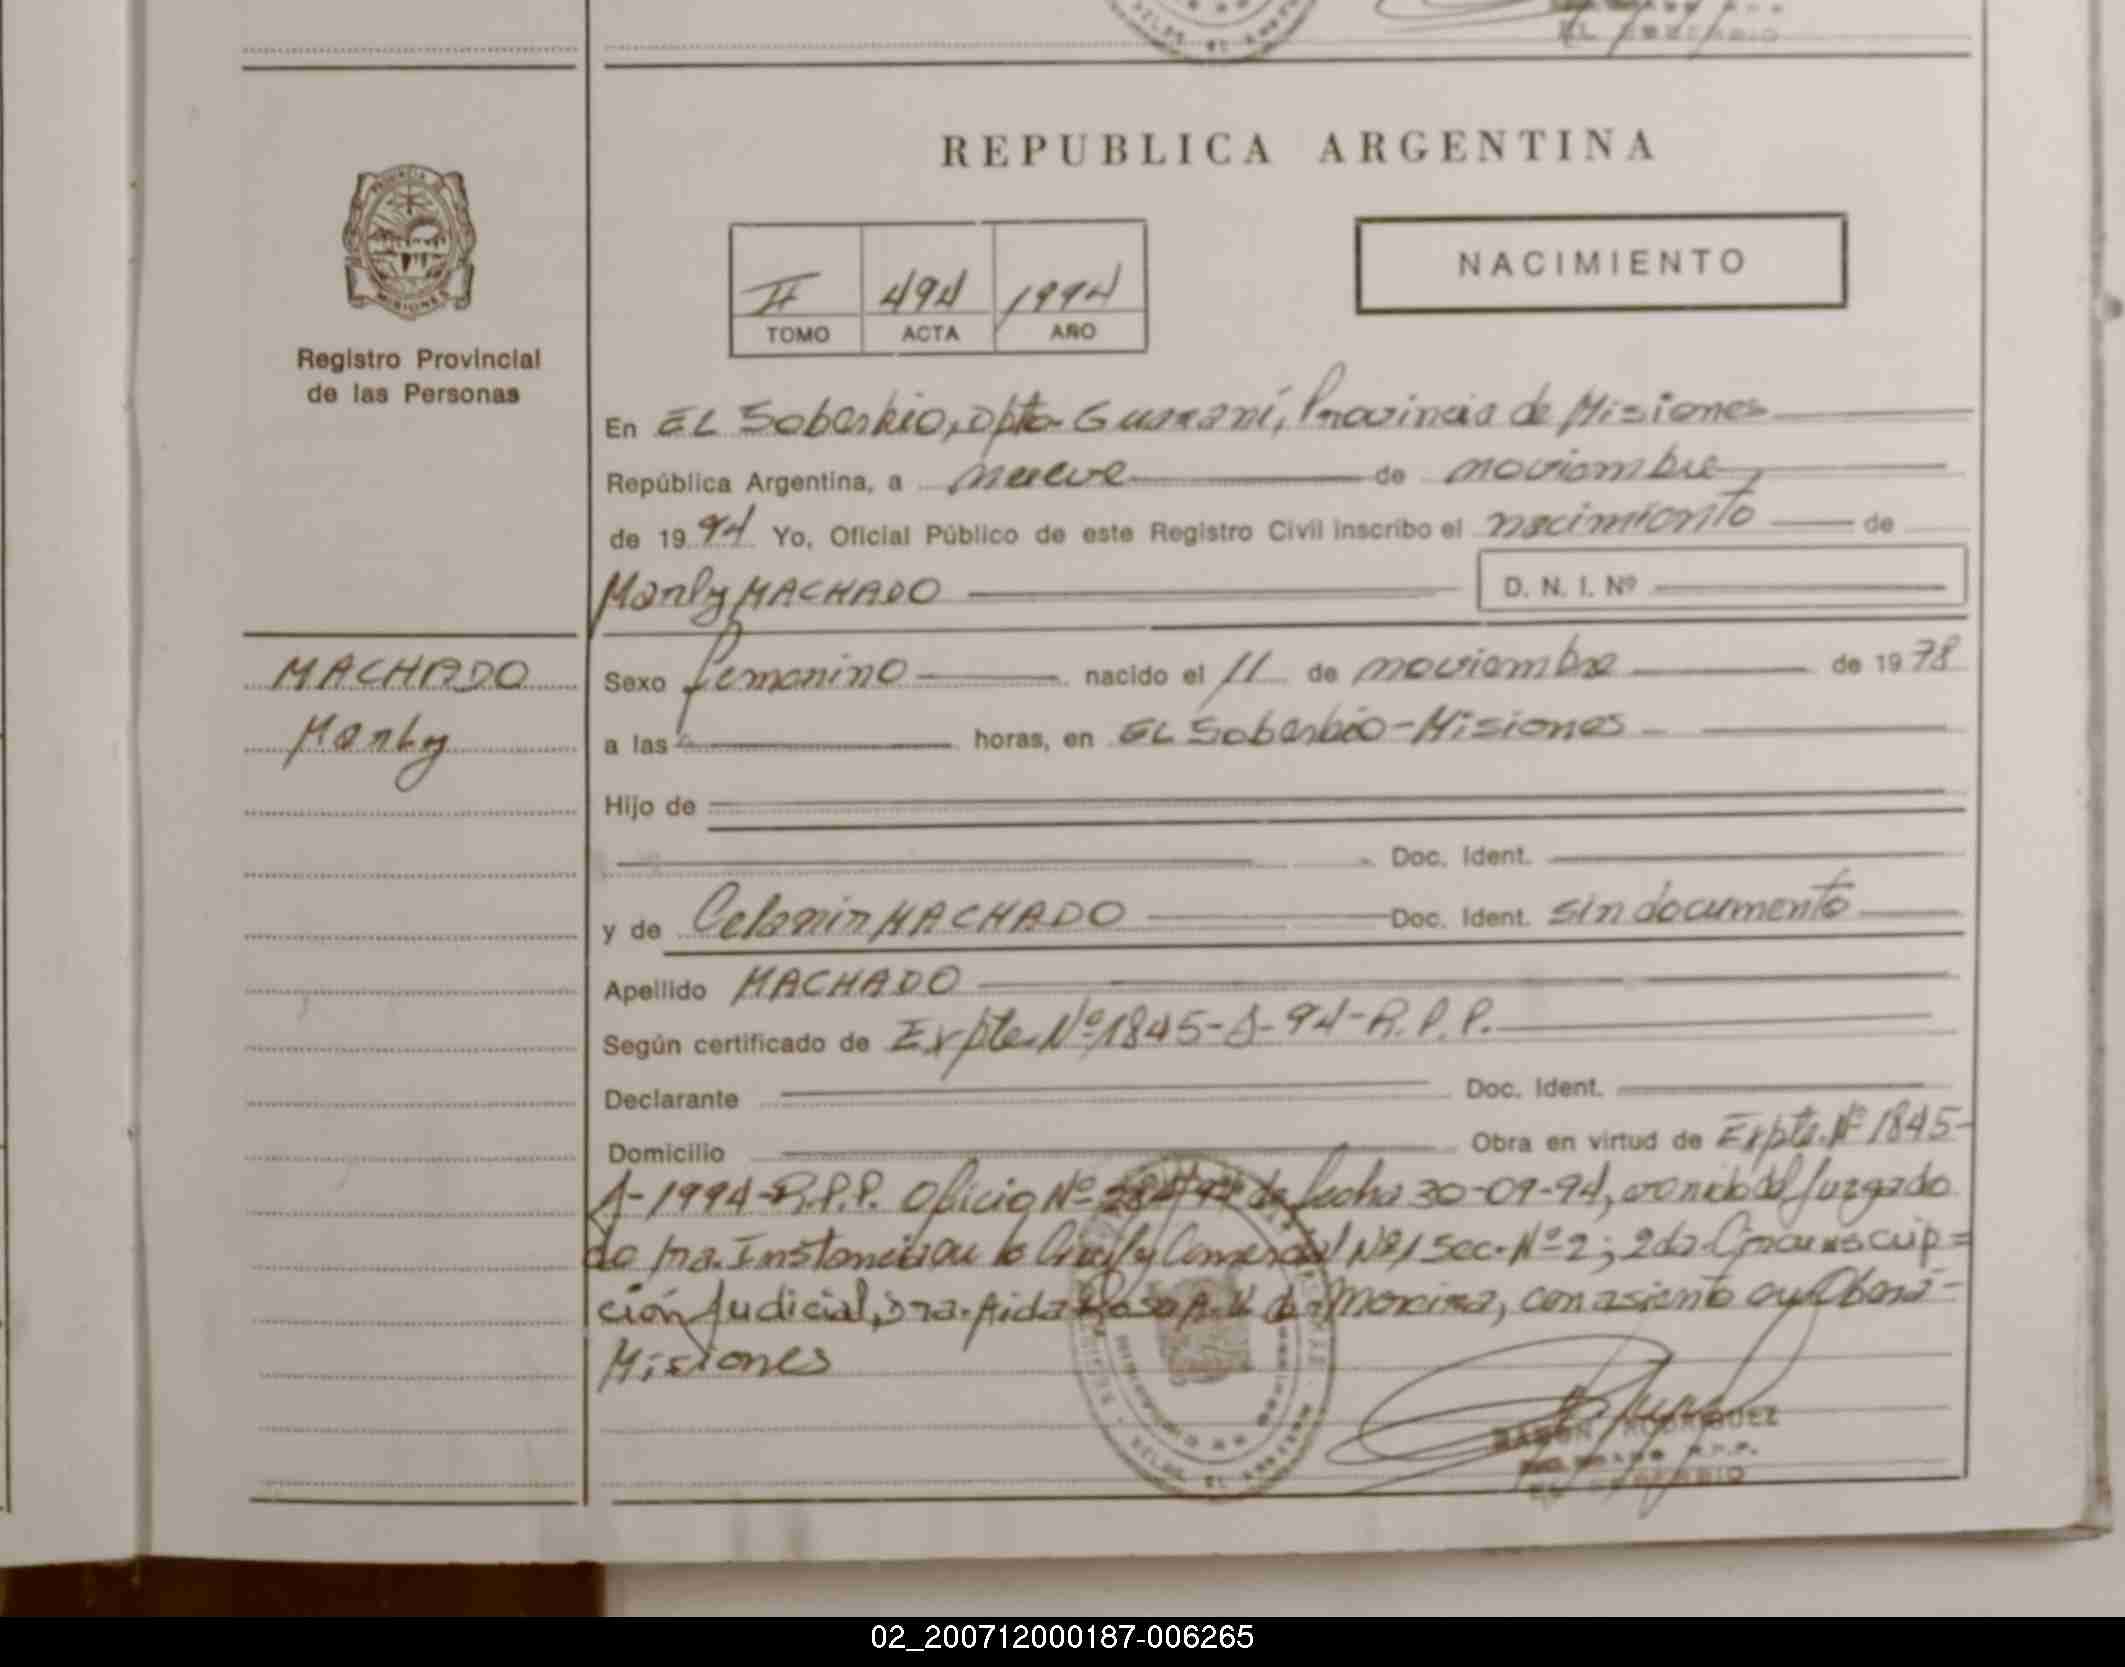 REPUBLICA ARGENTINA
PROVINCIA DE
MISIONES
Registro Provincial
de las Personas
II 494 1994
TOMO ACTA AÑO
NACIMIENTO
En EL Soberbio, Dpto- Guaraní, Provincia de Misiones
República Argentina, a nueve de noviembre
de 1994 Yo, Oficial Público de este Registro Civil inscribo el nacimiento de
Marly MACHADO D. N. I. Nº
MACHADO
Marly
Sexo femenino nacido el 11 de noviembre de 1978
a las horas, en EL Soberbio-Misiones
Hijo de
Doc. Ident.
y de MACHADO Doc. Ident. sin documento
Apellido MACHADO
Según certificado de Expte. Nº 1845-A-94-R.P.P.
Declarante Doc. Ident.
Domicilio Obra en virtud de Expte. Nº 1845-
A-1994-R.P.P. Oficio Nº de fecha 30-09-94, del Juzgado
de 1ra. Instancia en lo Civil y Comercial Nº1 Sec. Nº 2; 2da. Circunscrip=
ción Judicial, Dra. Aida Rosa de con asiento en Oberá-
Misiones
RAMON RODRIGUEZ
EL SOBERBIO
02_200712000187-006265